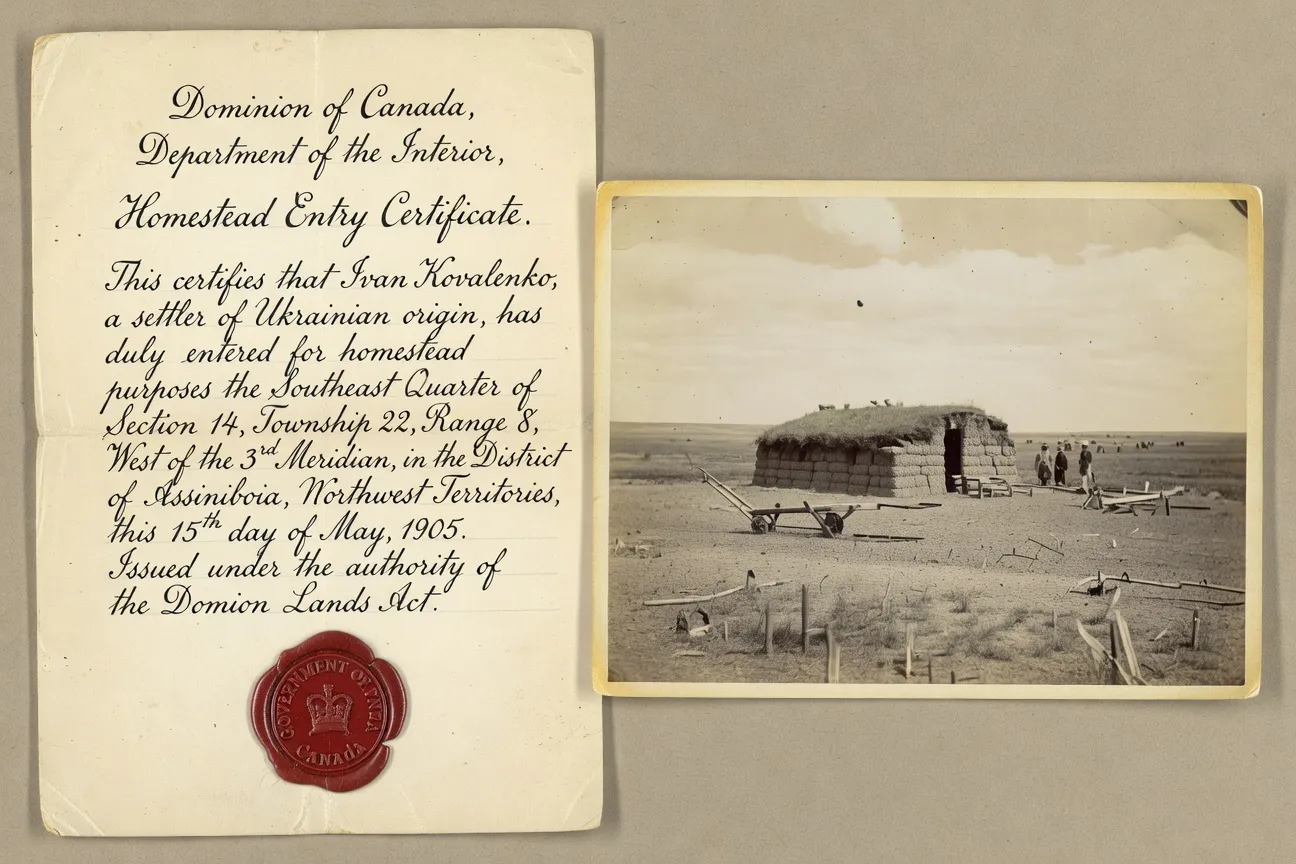 Dominion of Canada,
Department of the Interior,
Homestead Entry Certificate.
This certifies that Ivan Kovalenko,
a settler of Ukrainian origin, has
duly entered for homestead
purposes the Southeast Quarter of
Section 14, Township 22, Range 8,
West of the 3rd Meridian, in the District
of Assiniboia, Northwest Territories,
this 15th day of May, 1905.
Issued under the authority of
the Domion Lands Act.
GOVERNMENT OF
CANADA